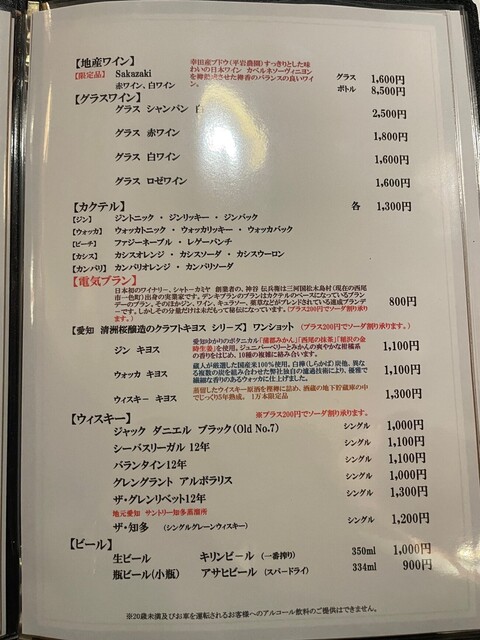 【地産ワイン】
【限定品】 Sakazaki 赤ワイン、白ワイン
幸田産ブドウ(平岩農園)すっきりとした味
わいの日本ワイン カベルネソーヴィニヨン
を樽
香のバランスの良いワイン、
グラス 1,600円
ボトル 8,500円
【グラスワイン】
グラス シャンパン 白 2,500円
グラス 赤ワイン 1,800円
グラス 白ワイン 1,600円
グラス ロゼワイン 1,600円
【カクテル】 各 1,300円
【ジン】 ジントニック ・ ジンリッキー ・ ジンバック
【ウォッカ】 ウォッカトニック ・ ウォッカリッキー ・ ウォッカバック
【ピーチ】 ファジーネーブル ・ レゲーパンチ
【カシス】 カシスオレンジ ・ カシスソーダ ・ カシスウーロン
【カンパリ】 カンパリオレンジ ・ カンパリソーダ
【電気ブラン】 800円
日本初のワイナリー、シャトーカミヤ 創業者の、神谷 伝兵衛は三河国松木島村(現在の西尾
市一色町)出身の実業家です。デンキブランのブランはカクテルのベースになっているブラン
デーのブラン。そのほかジン、ワイン、キュラソー、薬草などがブレンドされている速成ブランデ
ーです。しかしその分量だけは未だもって秘伝になっています。(プラス200円でソーダ割り承りま
す。)
【愛知 清洲桜醸造のクラフトキヨス シリーズ】 ワンショット (プラス200円でソーダ割り承ります。)
ジン キヨス 1,100円
愛知ゆかりのボタニカル「蒲郡みかん」「西尾の抹茶」「稲沢の金
時生姜」を使用。ジュニパーベリーとみかんの爽やかな柑橘系
の香りをはじめ、10種の複雑に組み合います。
ウォッカ キヨス 1,100円
蔵人が厳選した国産米100%使用。白樺(しらかば)炭他、異な
る複数の炭を組み合わせた弊社独自の濾過技術により、優雅で
繊細な香りのあるウォッカに仕上げました。
ウィスキー キヨス 1,300円
蒸留したウイスキー原酒を樫樽に詰め、酒蔵の地下貯蔵庫の中
でじっくり5年熟成。 1万本限定品
【ウィスキー】 ※プラス200円でソーダ割り承ります。
ジャック ダニエル ブラック(Old No.7) シングル 1,000円
シーバスリーガル 12年 シングル 1,100円
バランタイン12年 シングル 1,100円
グレングラント アルボラリス シングル 1,000円
ザ・グレンリベット12年 シングル 1,300円
地元愛知 サントリー知多蒸溜所
ザ・知多 (シングルグレーンウィスキー) シングル 1,200円
【ビール】
生ビール キリンビール (一番搾り) 350ml 1,000円
瓶ビール(小瓶) アサヒビール (スパードライ) 334ml 900円
※20歳未満及びお車を運転されるお客様へのアルコール飲料のご提供はできません。